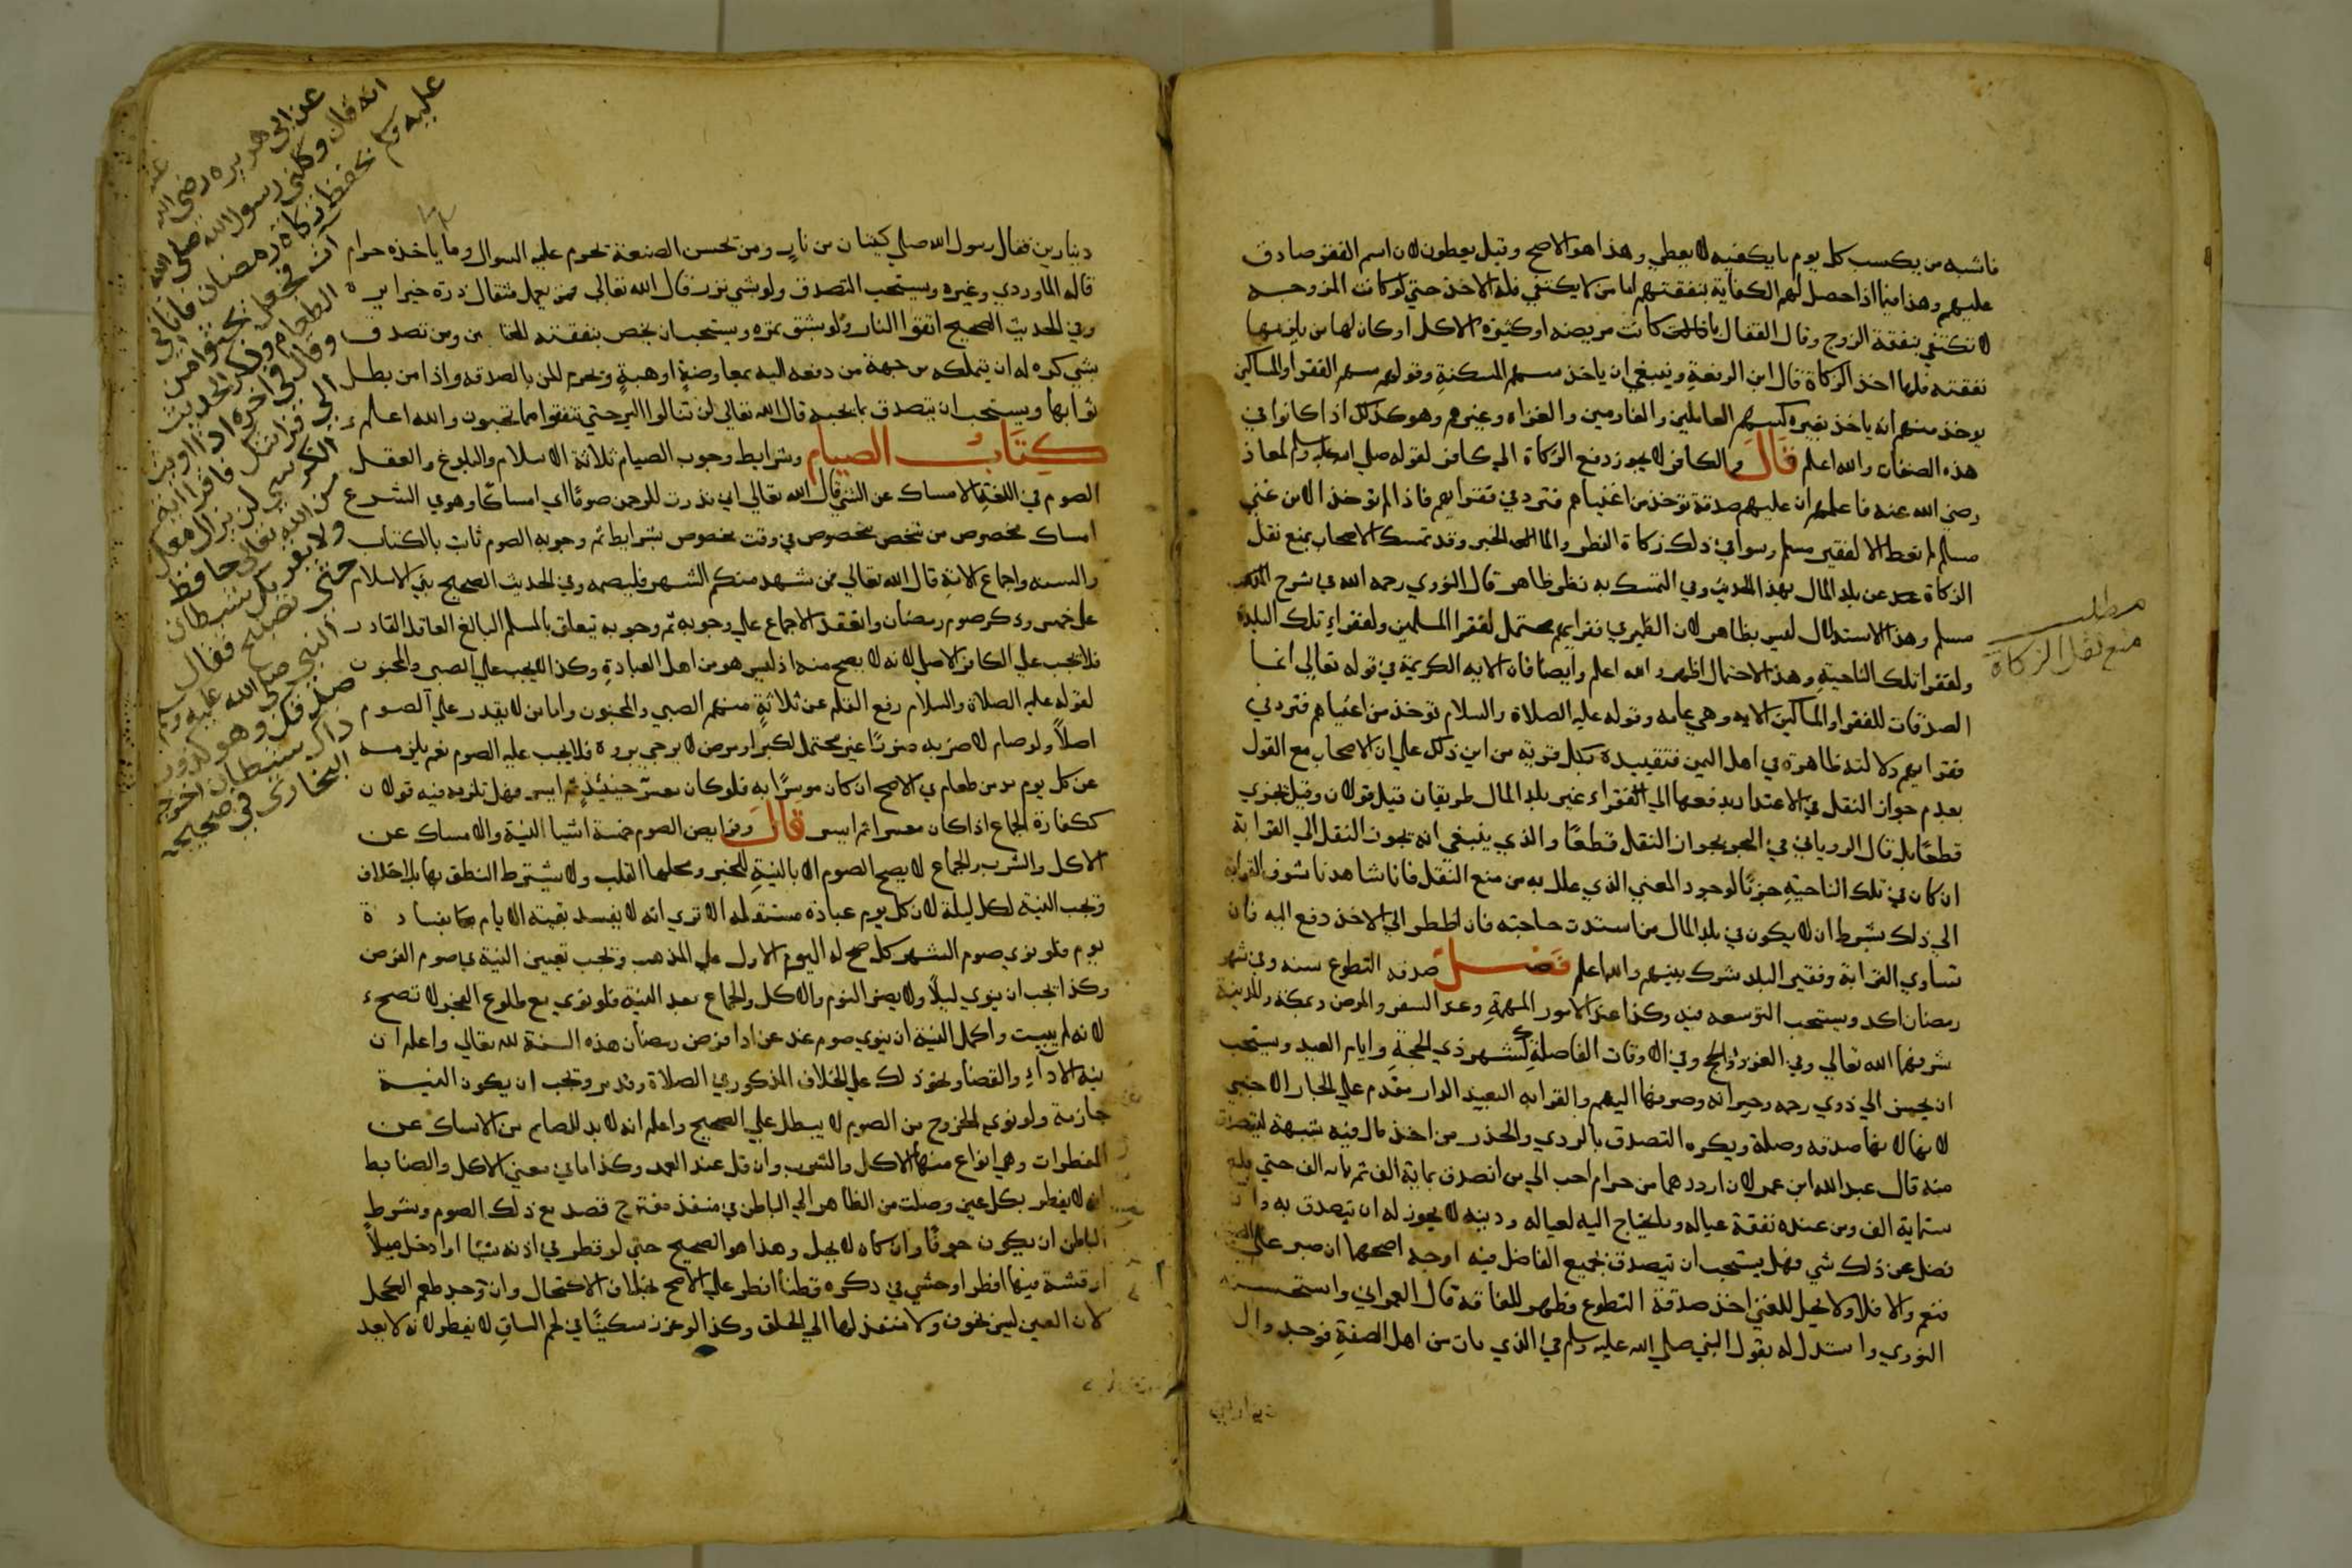 فاشبه من يكسب كل يوم ما يكفيه لا يعطي وهذا هو الاصح وقيل يعطون لان اسم الفقر صادق
عليهم وهذا فيما اذا حصل لهم الكفاية بنفقتهم اما من لا يكتفي فله الاخذ حتي لو كانت المزوجه
لا تكتفي بنفقة الزوج وقال القفال كانت مريضه او كثيرة الاكل او كان لها من يلزمها
نفقته فلها اخذ الزكاة قال ابن الرفعة وينبغي ان ياخذ سهم المسكنة وقولهم سهم الفقرا والمساكين
يوخذ منهم انه ياخذ بغيره كسهم العاملين والغارمين والغزاه وغيرهم وهو كذلك اذا كانوا في
هذه الصفات والله اعلم قال والكافر لا يجوز دفع الزكاة الي كافر لقوله صلي الله عليه وسلم لمعاذ
رضي الله عنه فاعلمهم ان عليهم صدقة توخذ من اغنياهم فترد في فقرايهم فاذا لم توخذ الا من غني
مسلم لم تعط الا لفقير مسلم وسوا في ذلك زكاة الفطر والمال للخبر وقد تمسك الاصحاب بمنع نقل
الزكاة عن بلد المال بهذا الحديث وفي التمسك به نظر ظاهر قال النووي رحمه الله في شرح
مسلم وهذا الاستدلال ليس بظاهر لان الظمير في فقرايهم محتمل لفقرا المسلمين ولفقراء تلك البلدة
ولفقرا تلك الناحية وهذا الاحتمال اظهر والله اعلم وايضا فان الايه الكريمة في قوله تعالي انما
الصدقات للفقرا والمساكين الايه وهي عامه وقوله عليه الصلاة والسلام توخذ من اغنياهم فترد في
فقرايهم دلالته ظاهرة في اهل اليمن فتقييده بكل قرية من اين ذلك علي ان الاصحاب مع القول
بعدم جواز النقل في الاعتداد بدفعها الي الفقراء غير بلد المال طريقان قيل قولان وقيل تجزي
قطعا بل قال الروياني في البحر بجواز النقل قطعا والذي ينبغي انه يجوز النقل الي القرابة
ان كان في تلك الناحية جزما لوجود المعني الذي علل به من منع النقل فانا شاهدنا تشوف القرابه
الي ذلك بشرط ان لا يكون في بلد المال من استدت حاجته فان اظطر الي الاخذ دفع اليه فان
تساوي القرابة وفقير البلد شرك بينهم والله اعلم فصل صدقه التطوع سنه وفي شهر
رمضان اكد ويستحب التوسعه فيه وكذا عند الامور المهمة وعند السفر والمرض وبمكة والمدينة
شرفهما الله تعالي وفي الغزو والحج وفي الاوقات الفاضلة كشهر ذي الحجة وايام العيد ويستحب
ان يحسن الي ذوي رحمه وجيرانه وصرفها اليهم والقرابه البعيد الدار مقدم علي الجار الاجنبي
لانها صدقه وصلة ويكره التصدق بالردي والحذر من اخذ مال فيه شبهة ليتصدق
منه قال عبد الله ابن عمر لان ارد درهما من حرام احب الي من اتصدق بماية الف ثم بماية الف حتي بلغ
ستماية الف ومن عنده نفقة عياله وما يحتاج اليه لعياله ودينه لا يجوز له ان يتصدق به وان
فضل عن ذلك شي فهل يستحب ان يتصدق بجميع الفاضل فيه اوجه اصحها ان صبر علي
فنعم والا فلا ولا يحل للغني اخذ صدقة التطوع مظهر للفاقة قال العمراني واستحسنه
النووي واستدل له بقول النبي صلي الله عليه وسلم في الذي مات من اهل الصفة فوجدوا له
مطلب
منع نقل الزكاة
دينارين فقال رسول الله صلي كيتان من نار ومن يحسن الصنعة يحرم عليه السوال وما ياخذه حرام
قاله الماوردي وغيره ويستحب التصدق ولو بشي نزر قال الله تعالي فمن يعمل مثقال ذرة خيرا يره
وفي الحديث الصحيح اتقوا النار ولو بشق تمره ويستحب ان يخص بنفقته ومن تصدق
بشي كره له ان يتملكه من جهة من دفعه اليه بمعاوضة او هبة ويحرم المن بالصدقه واذا من بطل
ثوابها ويستحب ان يتصدق بما يحبه قال الله تعالي لن تنالوا البر حتي تنفقوا مما تحبون والله اعلم
كتاب الصيام وشرايط وجوب الصيام ثلاثة الاسلام والبلوغ والعقل
الصوم في اللغة الامساك عن الشي قال الله تعالي اني نذرت للرحمن صوما اي امساكا وهو في الشرع
امساك مخصوص من شخص مخصوص في وقت مخصوص بشرايط ثم وجوبه الصوم ثابت بالكتاب
والسنه واجماع الامة قال الله تعالي فمن شهد منكم الشهر فليصمه وفي الحديث الصحيح بني الاسلام
علي خمس وذكر صوم رمضان وانعقد الاجماع علي وجوبه ثم وجوبه يتعلق بالمسلم البالغ العاقل القادر
فلا يجب علي الكافر الاصلي لانه لا يصح منه اذ ليس هو من اهل العبادة وكذا لا يجب علي الصبي والمجنون
لقوله عليه الصلاة والسلام رفع القلم عن ثلاثة منهم الصبي والمجنون واما من لا يقدر علي الصوم
اصلا ولو صام لاضر به ضررا غير محتمل لكبر او مرض لا يرجي بروه فلا يجب عليه الصوم نعم يلزمه
عن كل يوم مد من طعام في الاصح ان كان موسرا به فلو كان معسرا حينيذ ثم ايسر فهل تلزمه فيه قولان
ككفارة الجماع اذا كان معسرا ثم ايسر قال وفرايض الصوم خمسة اشيا النية والامساك عن
الاكل والشرب والجماع لا يصح الصوم الا بالنية للخبر ومحلها القلب ولا يشترط النطق بها بلا خلاف
وتجب النية لكل ليلة لان كل يوم عبادة مستقلة الا تري انه لا يفسد بقية الايام بفساد
يوم فلو نوي صوم الشهر كله صح له اليوم الاول علي المذهب وتجب تعيين النية في صوم الفرض
وكذا يجب ان ينوي ليلا ولا يضر النوم والاكل والجماع بعد النية فلو نوي مع طلوع الفجر لا تصح
لانه لم يبيت واكمل النية ان ينوي صوم غد عن ادا فرض رمضان هذه السنة لله تعالي واعلم ان
نية الاداء والقضا ونحو ذلك علي الخلاف المذكور في الصلاة وتجب ان يكون النية
جازمة ولو نوي الخروج من الصوم لا يبطل علي الصحيح واعلم انه لا بد للصايم من الامساك عن
المفطرات وهي انواع منها الاكل والشرب وان قل عند العمد وكذا ما في معني الاكل والضابط
انه لا يفطر بكل عين وصلت من الظاهر الي الباطن في منفذ مفتوح قصد مع ذلك الصوم وشرط
الباطن ان يكون جوفا وان كان لا يحيل وهذا هو الصحيح حتي لو قطر في اذنه شيا او ادخل ميلا
او قشة فيها افطر او حشي في ذكره قطنا افطر علي الاصح بخلاف الاكتحال وان وجد طعم الكحل
لان العين ليس بجوف ولا منفذ لها الي الحلق وكذا لو غرز سكينا في لحم الساق لا يفطر لانه لا يعد
عن ابي هريره رضي الله عنه
انه قال وكلني رسول الله صلى الله
عليه وسلم بحفظ زكاة رمضان فاتاني
آت فجعل يحثوا من
الطعام وذكر الحديث
وقال في اخره اذا اويت
الى فراشك فاقرا اية
الكرسي لن يزال معك
من الله تعالى حافظ
ولا يقربك شيطان
حتى تصبح فقال
النبي صلى الله عليه وسلم
صدقك وهو كذوب
ذاك شيطان اخرجه
البخاري في صحيحه